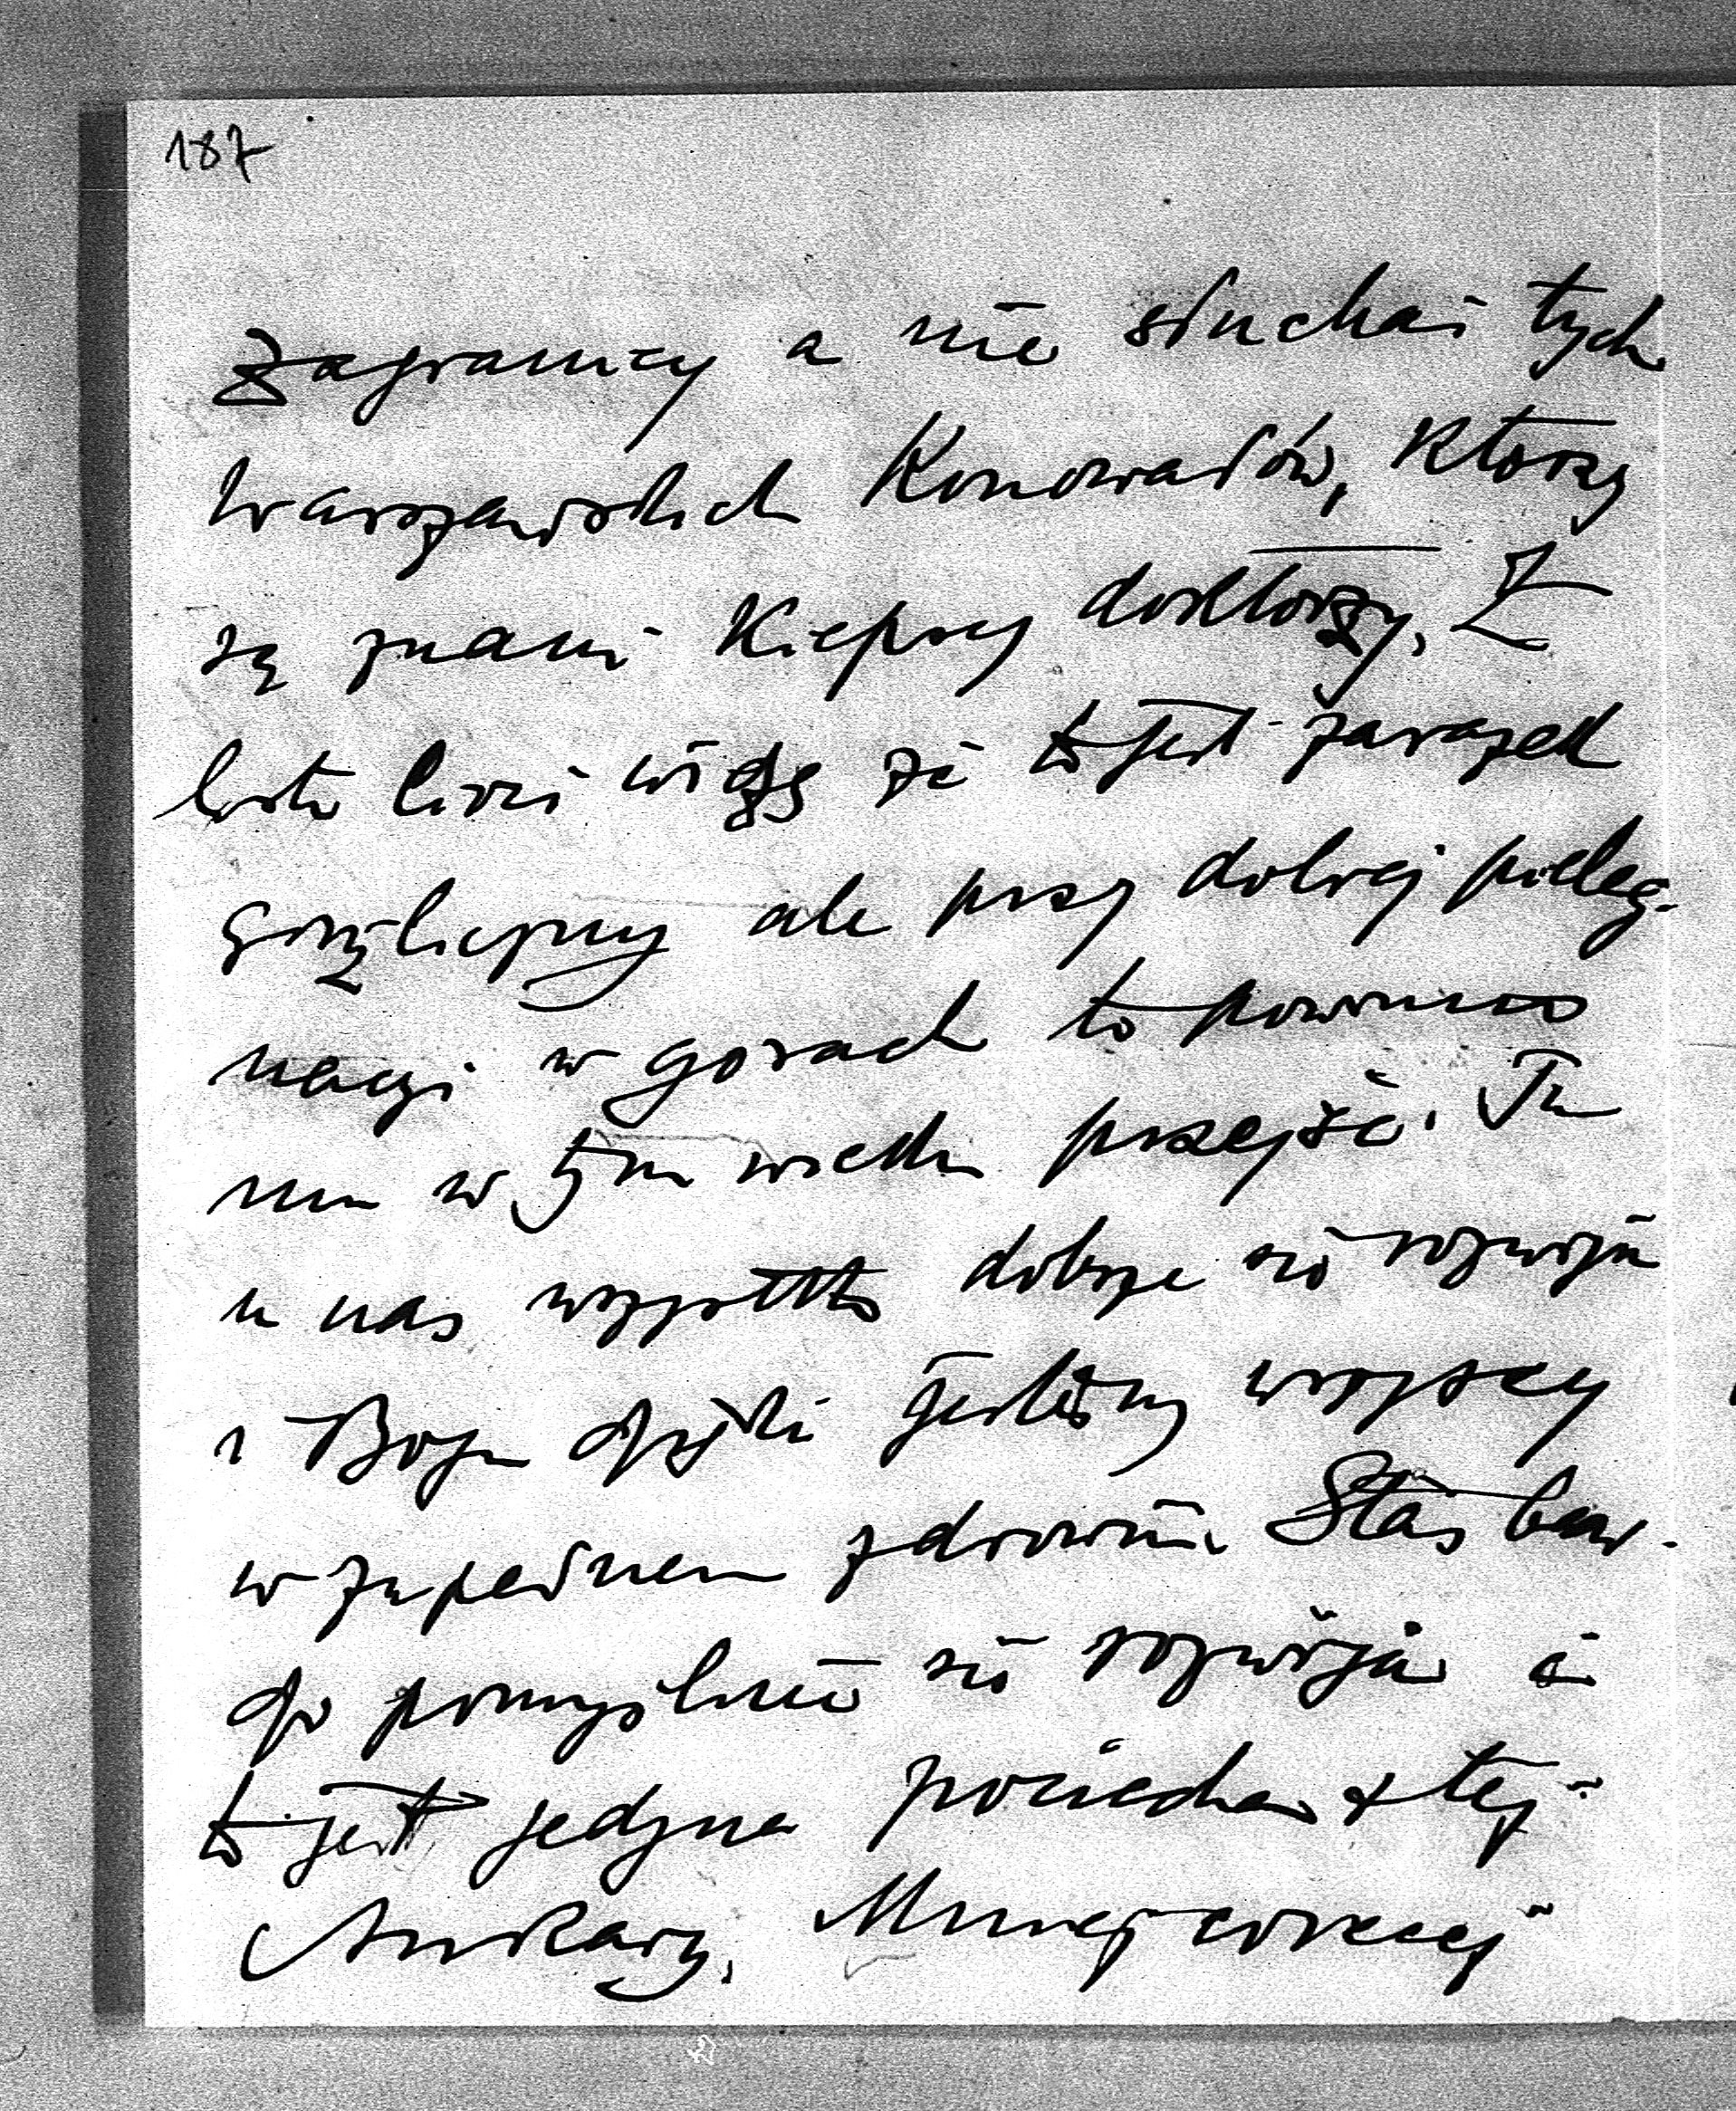 187
zagranicy a nie słuchać tych
warszawskich Konowałów, którzy
są znani kiepscy doktorzy. Z
listu Ciocі widzę że to jest zarazek
gruźliczny ale przy dobrej pieleg-
nacji w gorach to powinno
mu w tym wieku przejść. Tu
u nas wszystko dobrze się rozwija
i Bogu dzięki jesteśmy wszyscy
w zupełnem zdrowiu. Staś bar-
dzo pomyślnie się rozwija i
to jest jedyna pociecha z tej
Ankary. Mniej więcej